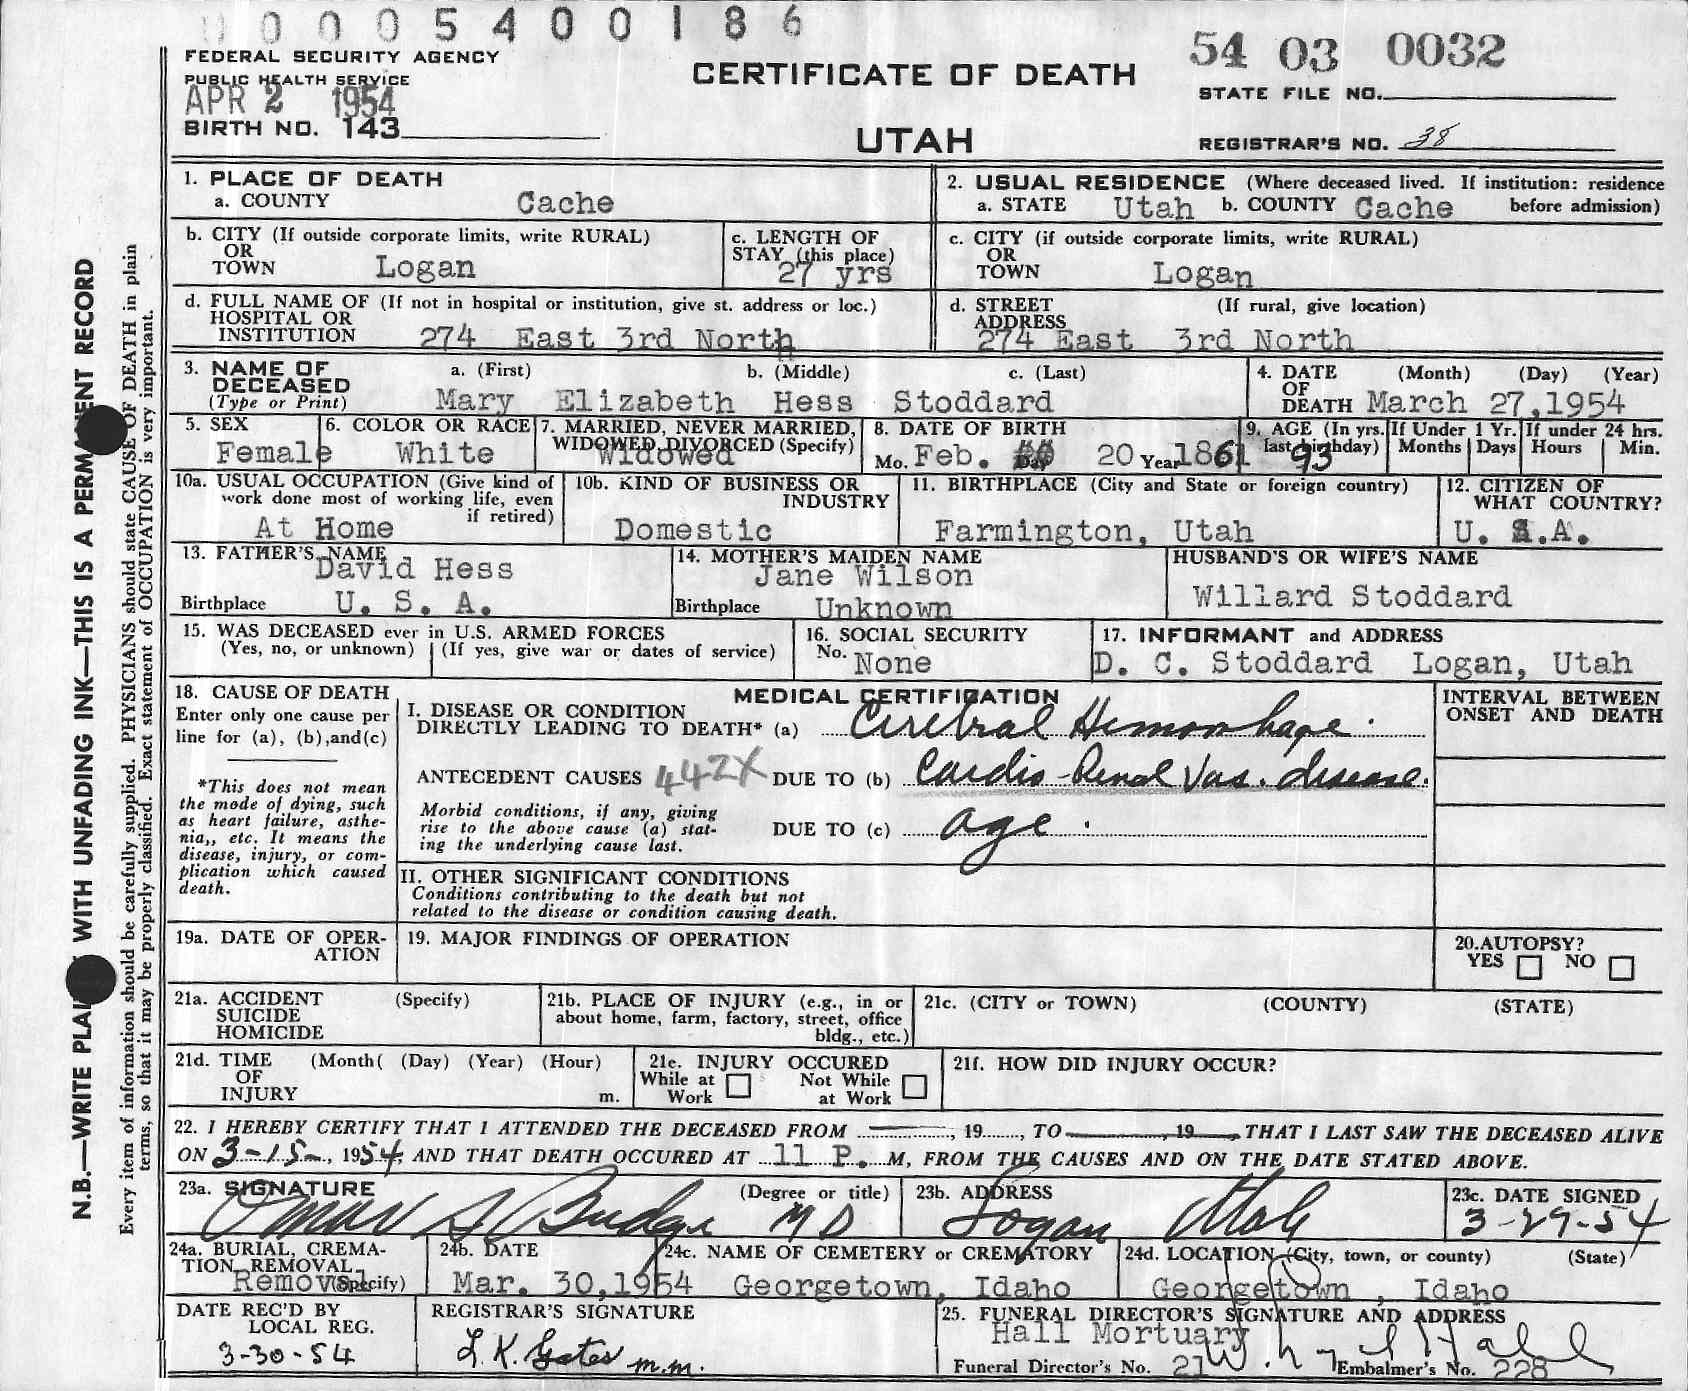 0 0 0 5 4 0 0 1 8 6
FEDERAL SECURITY AGENCY
PUBLIC HEALTH SERVICE
APR 2 1954
BIRTH NO. 143
CERTIFICATE OF DEATH
UTAH
54 03 0032
STATE FILE NO.
REGISTRAR'S NO. 38
N.B.—WRITE PLAI WITH UNFADING INK—THIS IS A PERMA ENT RECORD
Every item of information should be carefully supplied. PHYSICIANS should state CAUSE OF DEATH in plain
terms, so that it may be properly classified. Exact statement of OCCUPATION is very important.
1. PLACE OF DEATH
a. COUNTY Cache
2. USUAL RESIDENCE (Where deceased lived. If institution: residence
a. STATE Utah b. COUNTY Cache before admission)
b. CITY (If outside corporate limits, write RURAL)
OR
TOWN Logan
c. LENGTH OF
STAY (this place)
27 yrs
c. CITY (if outside corporate limits, write RURAL)
OR
TOWN Logan
d. FULL NAME OF (If not in hospital or institution, give st. address or loc.)
HOSPITAL OR
INSTITUTION 274 East 3rd North
d. STREET (If rural, give location)
ADDRESS
274 East 3rd North
3. NAME OF a. (First) b. (Middle) c. (Last)
DECEASED
(Type or Print) Mary Elizabeth Hess Stoddard
4. DATE (Month) (Day) (Year)
OF
DEATH March 27, 1954
5. SEX
Female
6. COLOR OR RACE
White
7. MARRIED, NEVER MARRIED,
WIDOWED DIVORCED (Specify)
Widowed
8. DATE OF BIRTH
Mo. Feb. Day 20 Year 1861
9. AGE (In yrs.
last birthday)
93
If Under 1 Yr.
Months Days
If under 24 hrs.
Hours Min.
10a. USUAL OCCUPATION (Give kind of
work done most of working life, even
if retired)
At Home
10b. KIND OF BUSINESS OR
INDUSTRY
Domestic
11. BIRTHPLACE (City and State or foreign country)
Farmington, Utah
12. CITIZEN OF
WHAT COUNTRY?
U. S.A.
13. FATHER'S NAME
David Hess
Birthplace U. S. A.
14. MOTHER'S MAIDEN NAME
Jane Wilson
Birthplace Unknown
HUSBAND'S OR WIFE'S NAME
Willard Stoddard
15. WAS DECEASED ever in U.S. ARMED FORCES
(Yes, no, or unknown) (If yes, give war or dates of service)
16. SOCIAL SECURITY
No. None
17. INFORMANT and ADDRESS
D. C. Stoddard Logan, Utah
18. CAUSE OF DEATH
Enter only one cause per
line for (a), (b),and(c)
*This does not mean
the mode of dying, such
as heart failure, asthe-
nia,, etc. It means the
disease, injury, or com-
plication which caused
death.
MEDICAL CERTIFICATION
I. DISEASE OR CONDITION
DIRECTLY LEADING TO DEATH* (a) Cerebral Hemorrhage.
ANTECEDENT CAUSES 442X DUE TO (b) Cardio-Renal Vas. disease.
Morbid conditions, if any, giving
rise to the above cause (a) stat-
ing the underlying cause last.
DUE TO (c) age.
INTERVAL BETWEEN
ONSET AND DEATH
II. OTHER SIGNIFICANT CONDITIONS
Conditions contributing to the death but not
related to the disease or condition causing death.
19a. DATE OF OPER-
ATION
19. MAJOR FINDINGS OF OPERATION
20.AUTOPSY?
YES NO
21a. ACCIDENT (Specify)
SUICIDE
HOMICIDE
21b. PLACE OF INJURY (e.g., in or
about home, farm, factory, street, office
bldg., etc.)
21c. (CITY or TOWN) (COUNTY) (STATE)
21d. TIME (Month( (Day) (Year) (Hour)
OF
INJURY m.
21e. INJURY OCCURED
While at Work Not While at Work
21f. HOW DID INJURY OCCUR?
22. I HEREBY CERTIFY THAT I ATTENDED THE DECEASED FROM , 19 , TO , 19 , THAT I LAST SAW THE DECEASED ALIVE
ON 3-15-, 1954, AND THAT DEATH OCCURED AT 11 P. M, FROM THE CAUSES AND ON THE DATE STATED ABOVE.
23a. SIGNATURE (Degree or title)
Omar S Budge M D
23b. ADDRESS
Logan Utah
23c. DATE SIGNED
3-29-54
24a. BURIAL, CREMA-
TION REMOVAL
Removal (Specify)
24b. DATE
Mar. 30, 1954
24c. NAME OF CEMETERY or CREMATORY
Georgetown, Idaho
24d. LOCATION (City, town, or county) (State)
Georgetown , Idaho
DATE REC'D BY
LOCAL REG.
3-30-54
REGISTRAR'S SIGNATURE
L. K. Gates m.m.
25. FUNERAL DIRECTOR'S SIGNATURE AND ADDRESS
Hall Mortuary
Funeral Director's No. 21 Embalmer's No. 228